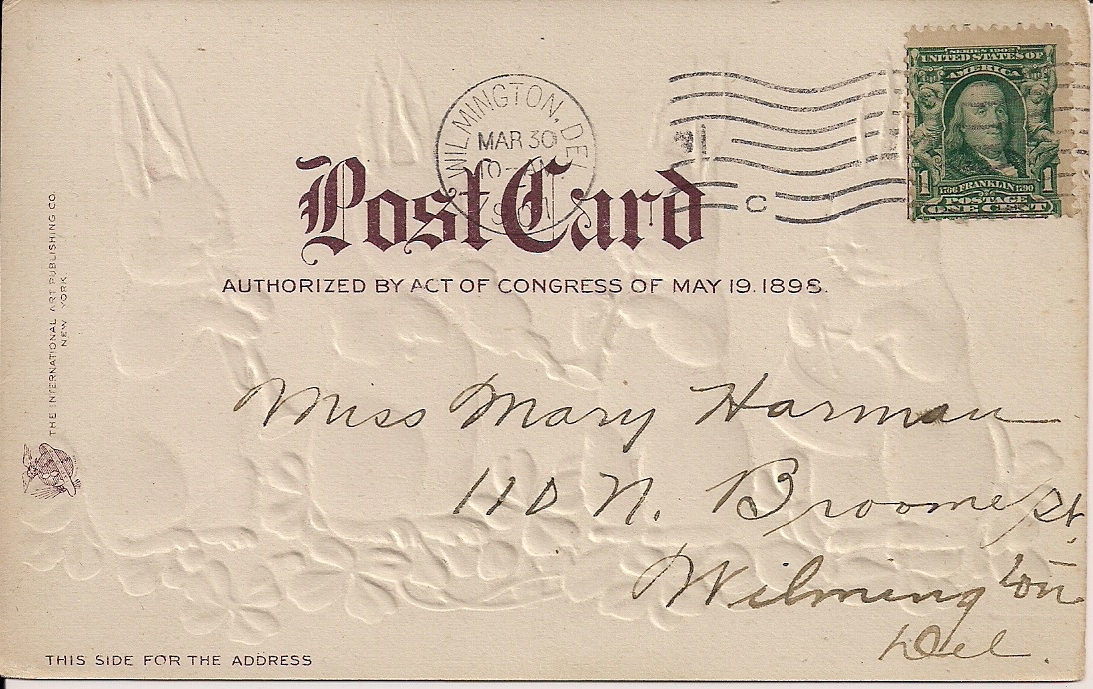 SERIES 1902
UNITED STATES OF
AMERICA
1 1
1706 FRANKLIN 1790
POSTAGE
ONE CENT
WILMINGTON, DEL
MAR 30
C
Post Card
AUTHORIZED BY ACT OF CONGRESS OF MAY 19. 1898.
THE INTERNATIONAL ART PUBLISHING CO.
NEW YORK
Miss Mary Harman
110 N. Broome St.
Wilmington
Del.
THIS SIDE FOR THE ADDRESS